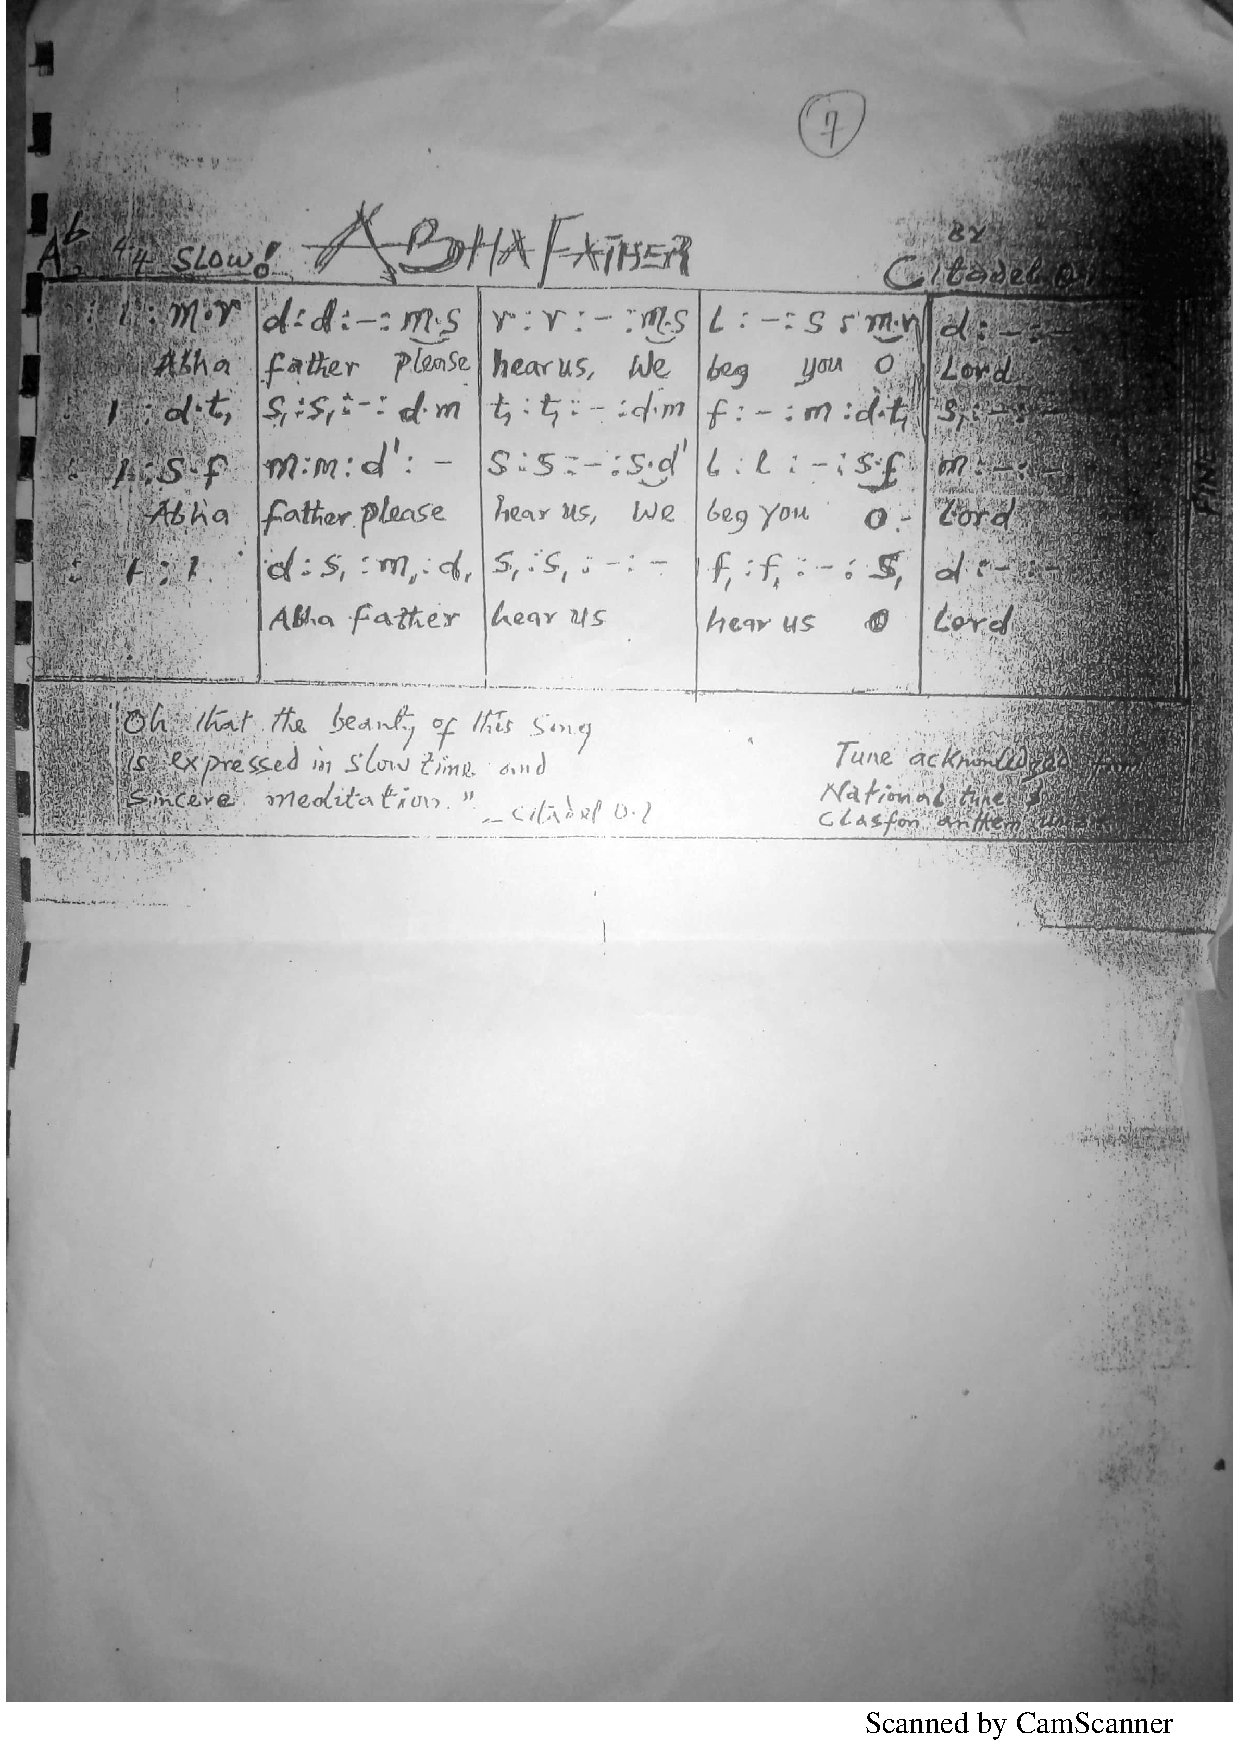 7
Ab 4/4 SLOW! ABHA FATHER BY
Citadel O.
: 1 : m.r d : d : - : m.s r : r : - : m.s l : - : s : m.r d : - : -
Abha father please hear us, We beg you O Lord
: 1 : d.t, s, : s, : - : d.m t, : t, : - : d.m f : - : m : d.t, s, : - : -
: 1 : s.f m : m : d' : - s : s : - : s.d' l : l : - : s.f m : - : -
Abha father please hear us, We beg you O.- Lord
: 1 : 1. d : s, : m, : d, s, : s, : - : - f, : f, : - : s, d : - : -
Abha father hear us hear us O Lord
FINE
"Oh that the beauty of this song
is expressed in slow time and
sincere meditation." - Citadel O.I
Tune acknowledged from
National tune &
Clasfon anthem
Scanned by CamScanner